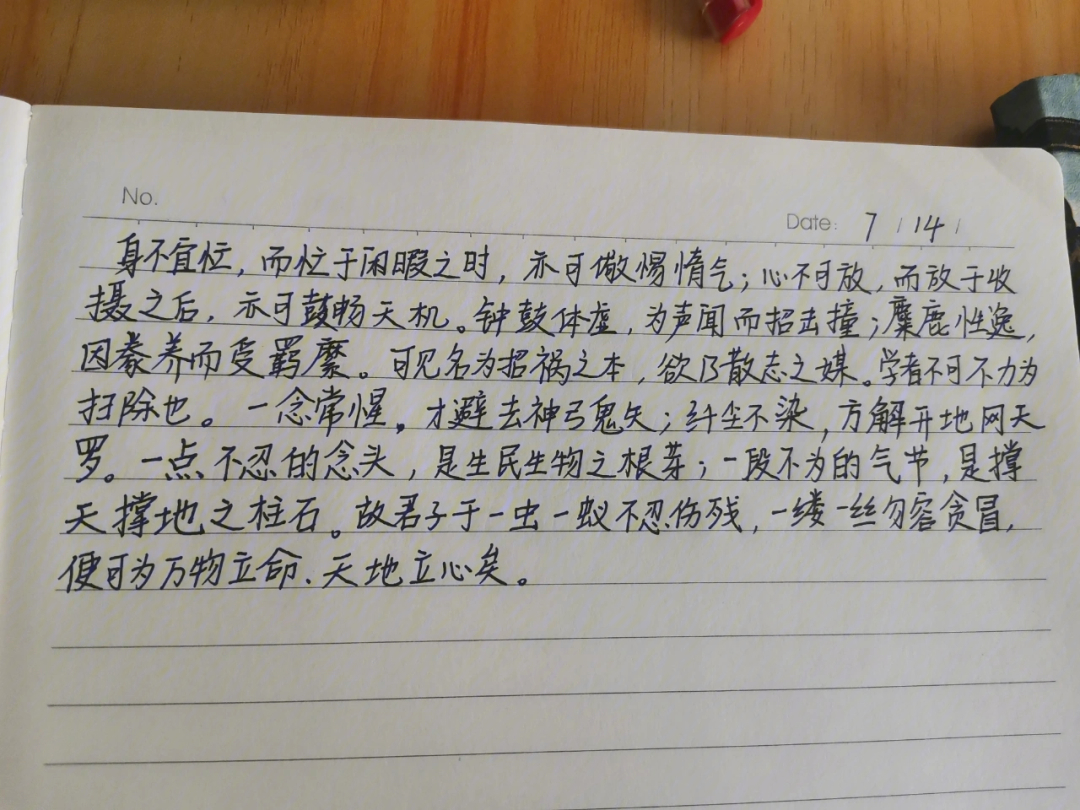 No.
Date: 7 / 14 /
身不宜忙，而忙于闲暇之时，亦可儆惕惰气；心不可放，而放于收
摄之后，亦可鼓畅天机。钟鼓体虚，为声闻而招击撞；麋鹿性逸，
因豢养而受羁縻。可见名为招祸之本，欲乃散志之媒。学者不可不力为
扫除也。一念常惺，才避去神弓鬼矢；纤尘不染，方解开地网天
罗。一点不忍的念头，是生民生物之根芽；一段不为的气节，是撑
天撑地之柱石。故君子于一虫一蚁不忍伤残，一缕一丝勿容贪冒，
便可为万物立命、天地立心矣。